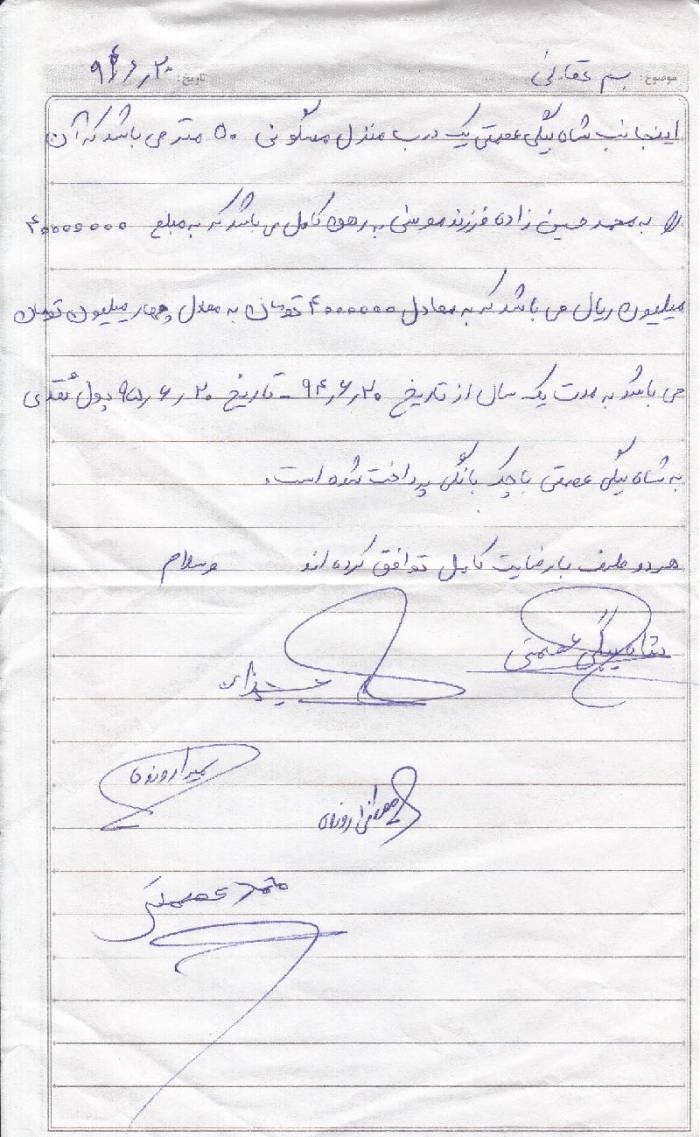 موضوع: بسم تعالی تاریخ: ۹۴٫۶٫۲۰
اینجانب شاه بیگی عصمتی یک درب منزل مسکونی ۵۰ متر می باشد که آن
را به محمد حسین زاده فرزند موسی به رهن کامل می باشد که به مبلغ ۴۰۰۰۰۰۰۰
میلیون ریال می باشد که به معادل ۴۰۰۰۰۰۰ تومان به معادل چهار میلیون تومان
می باشد به مدت یک سال از تاریخ ۹۴٫۶٫۲۰ - تاریخ ۹۵٫۶٫۲۰ پول نقدی
به شاه بیگی عصمتی با چک بانگی پرداخت شده است.
هر دو طرف با رضایت کامل توافق کرده اند وسلام
شاه بیگی عصمتی
حسین زاده
اروند
مصطفی اروند
محمد عصمتی